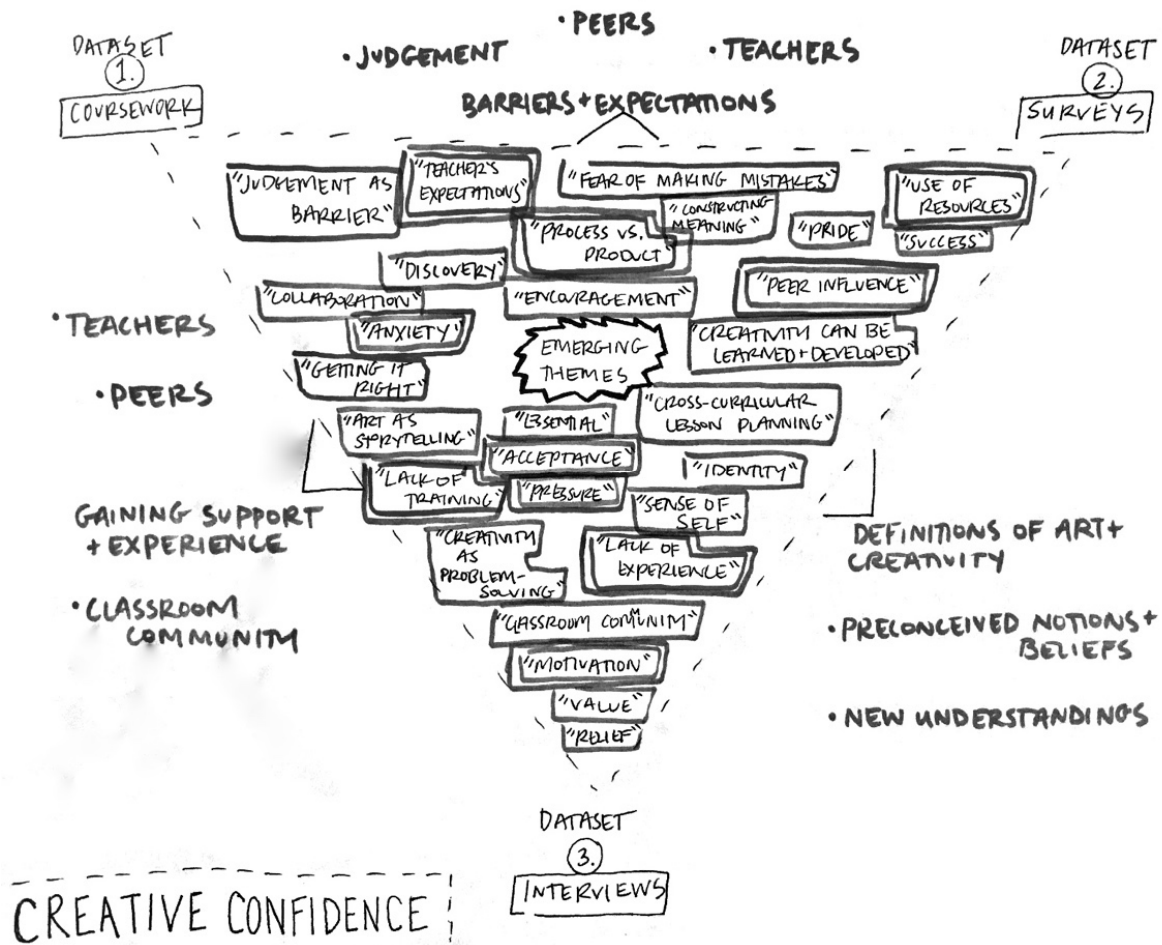 • PEERS
• JUDGEMENT
• TEACHERS
DATASET
1.
COURSEWORK
DATASET
2.
SURVEYS
BARRIERS + EXPECTATIONS
"JUDGEMENT AS
BARRIER"
"TEACHER'S
EXPECTATIONS"
"FEAR OF MAKING MISTAKES"
"CONSTRUCTING
MEANING"
"USE OF
RESOURCES"
"PROCESS VS.
PRODUCT"
"PRIDE"
"SUCCESS"
"DISCOVERY"
"PEER INFLUENCE"
"COLLABORATION"
"ENCOURAGEMENT"
"ANXIETY"
EMERGING
THEMES
"CREATIVITY CAN BE
LEARNED + DEVELOPED"
"GETTING IT
RIGHT"
"ART AS
STORYTELLING"
"ESSENTIAL"
"CROSS-CURRICULAR
LESSON PLANNING"
"ACCEPTANCE"
"IDENTITY"
"LACK OF
TRAINING"
"PRESSURE"
"SENSE OF
SELF"
"CREATIVITY
AS
PROBLEM-
SOLVING"
"LACK OF
EXPERIENCE"
"CLASSROOM COMMUNITY"
"MOTIVATION"
"VALUE"
"RELIEF"
• TEACHERS
• PEERS
GAINING SUPPORT
+ EXPERIENCE
• CLASSROOM
COMMUNITY
DEFINITIONS OF ART +
CREATIVITY
• PRECONCEIVED NOTIONS +
BELIEFS
• NEW UNDERSTANDINGS
DATASET
3.
INTERVIEWS
CREATIVE CONFIDENCE